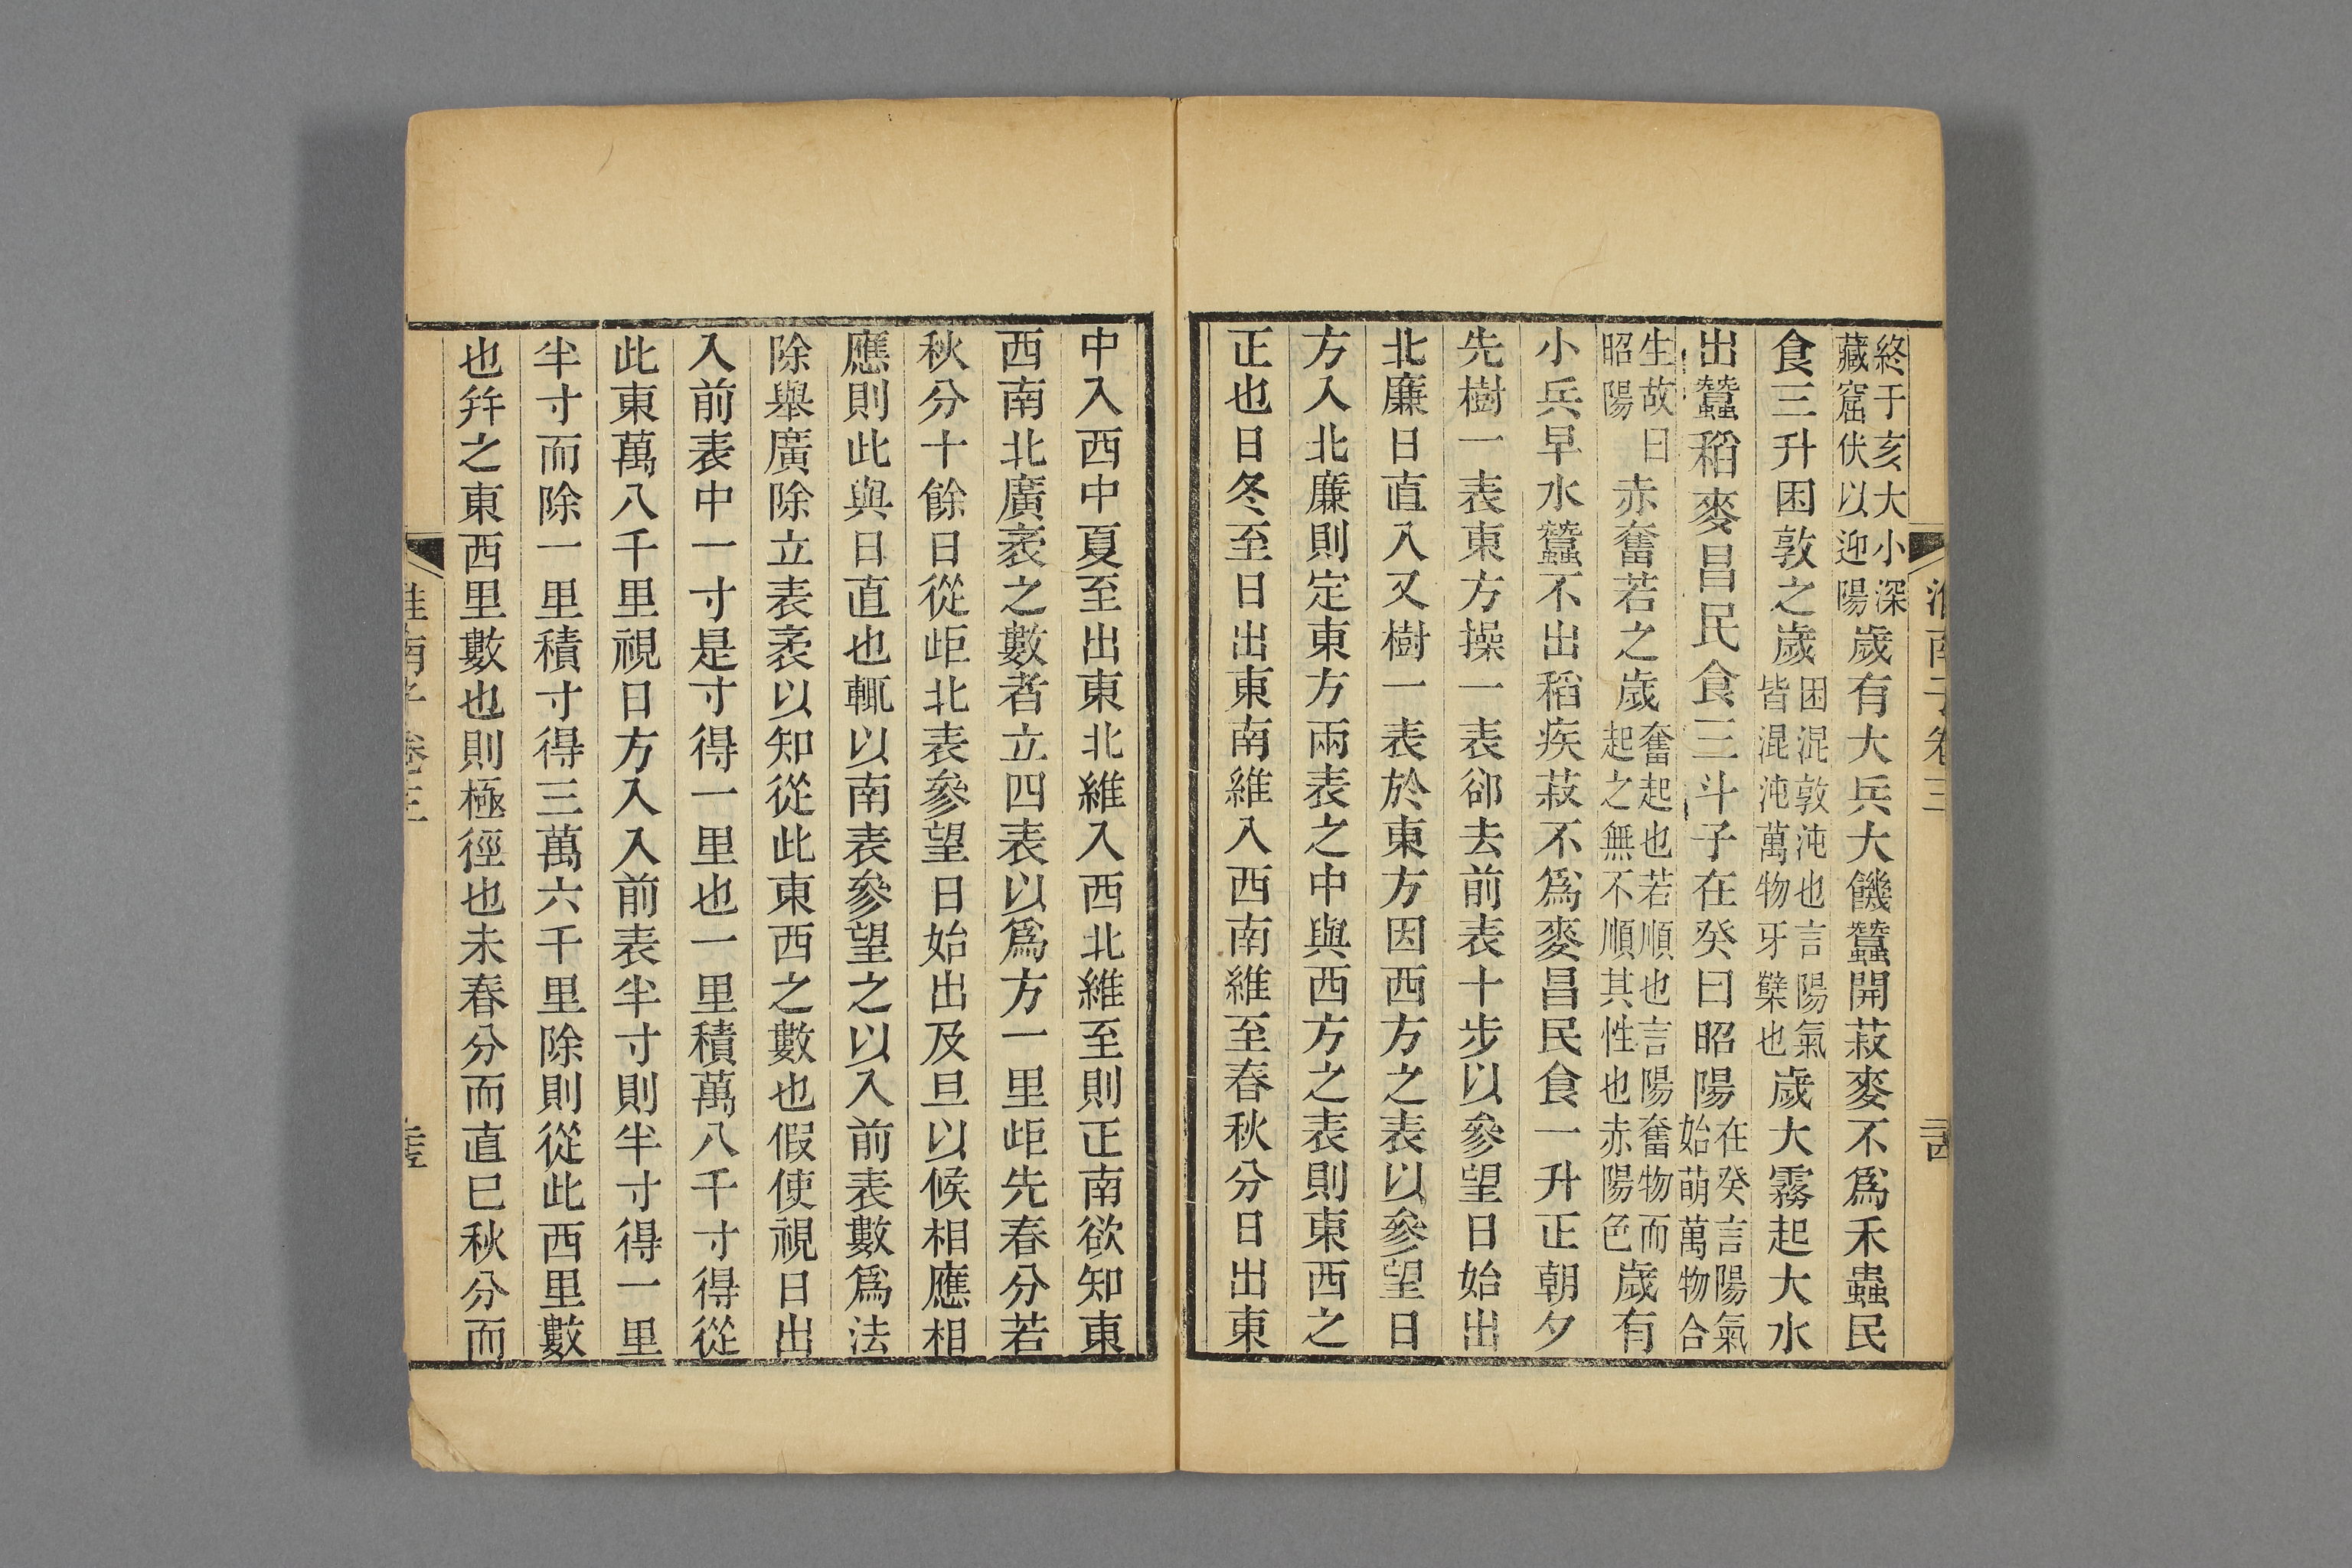 淮南子卷三
終于亥大小深
藏窟伏以迎陽
歲有大兵大饑蠶開菽麥不爲禾蟲民
食三升困敦之歲
困混敦沌也言陽氣
皆混沌萬物牙櫱也
歲大霧起大水
出蠶稻麥昌民食三斗子在癸曰昭陽
在癸言陽氣
始萌萬物合
生故曰
昭陽
赤奮若之歲
奮起也若順也言陽奮物而
起之無不順其性也赤陽色
歲有
小兵早水蠶不出稻疾菽不爲麥昌民食一升正朝夕
先樹一表東方操一表卻去前表十步以參望日始出
北廉日直入又樹一表於東方因西方之表以參望日
方入北廉則定東方兩表之中與西方之表則東西之
正也日冬至日出東南維入西南維至春秋分日出東
中入西中夏至出東北維入西北維至則正南欲知東
西南北廣袤之數者立四表以爲方一里歫先春分若
秋分十餘日從歫北表參望日始出及旦以候相應相
應則此與日直也輒以南表參望之以入前表數爲法
除舉廣除立表袤以知從此東西之數也假使視日出
入前表中一寸是寸得一里也一里積萬八千寸得從
此東萬八千里視日方入入前表半寸則半寸得一里
半寸而除一里積寸得三萬六千里除則從此西里數
也幷之東西里數也則極徑也未春分而直巳秋分而
淮南子卷三